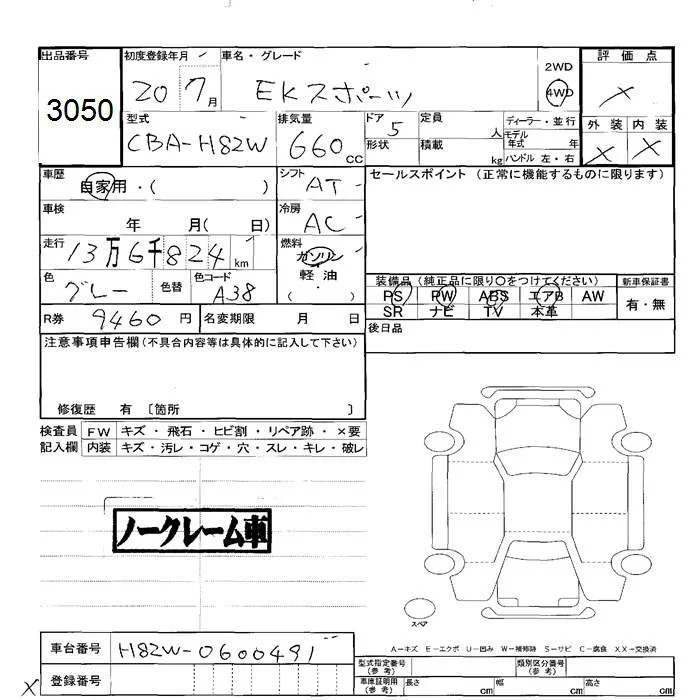 出品番号 初度登録年月 車名・グレード 2WD 評価点
3050 20 7月 EKスポーツ 4WD ×
型式 排気量 ドア 定員 ディーラー・並行 外装 内装
CBA-H82W 660cc 5 人 モデル年式 年 × ×
形状 積載 kg ハンドル 左・右
車歴 自家用・( ) シフト AT セールスポイント (正常に機能するものに限ります)
車検 年 月( 日) 冷房 AC
走行 13万6千824km 燃料 ガソリン
軽油
( ・ )
色 グレー 色替 色コード A38
装備品 (純正品に限り○をつけてください) 新車保証書
PS PW ABS エアB AW 有・無
SR ナビ TV 本革
R券 9460円 名変期限 月 日
後日品
注意事項申告欄(不具合内容等は具体的に記入して下さい)
修復歴 有 〔箇所 〕
検査員 FW キズ・飛石・ヒビ割・リペア跡・×要
記入欄 内装 キズ・汚レ・コゲ・穴・スレ・キレ・破レ
ノークレーム車
スペア
A-キズ E-エクボ U-凹み W-補修跡 S-サビ C-腐食 XX-交換済
車台番号 H82W-0600491
型式指定番号(参考) 類別区分番号(参考)
× 登録番号
車庫証明用(参考) 長さ cm 幅 cm 高さ cm